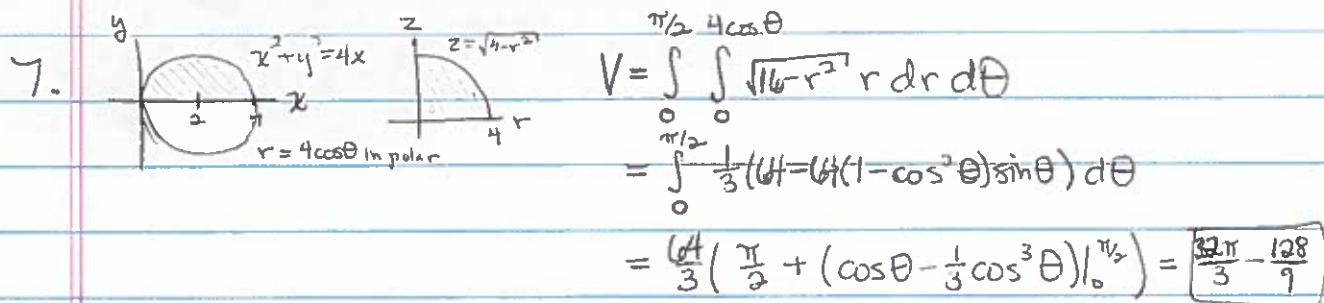 7.
y
x² + y² = 4x
x
2
4
r = 4cosθ in polar
z
z = √(4-r²)
4
r
V = ∫₀^{π/2} ∫₀^{4cosθ} √(16-r²) r dr dθ
= ∫₀^{π/2} 1/3 (64 - 64(1-cos²θ)sinθ) dθ
= 64/3 ( π/2 + (cosθ - 1/3 cos³θ)|₀^{π/2} ) = 32π/3 - 128/9